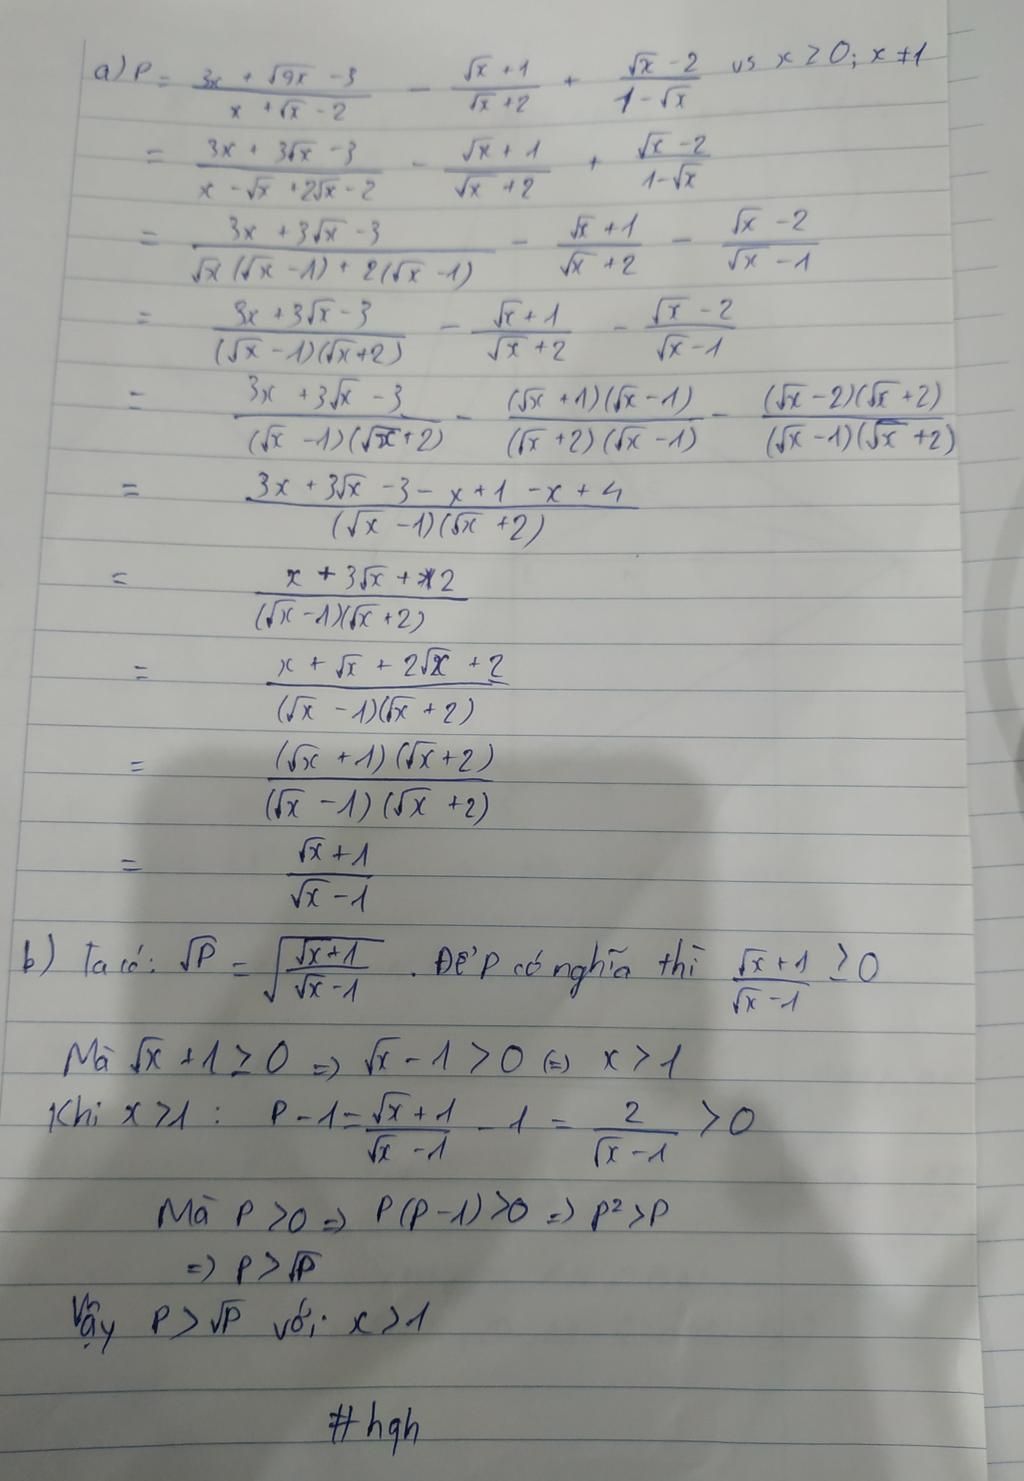 a) P = (3x + √9x - 3)/(x + √x - 2) - (√x + 1)/(√x + 2) + (√x - 2)/(1 - √x) vs x ≥ 0; x ≠ 1
= (3x + 3√x - 3)/(x - √x + 2√x - 2) - (√x + 1)/(√x + 2) + (√x - 2)/(1 - √x)
= (3x + 3√x - 3)/(√x(√x - 1) + 2(√x - 1)) - (√x + 1)/(√x + 2) - (√x - 2)/(√x - 1)
= (3x + 3√x - 3)/((√x - 1)(√x + 2)) - (√x + 1)/(√x + 2) - (√x - 2)/(√x - 1)
= (3x + 3√x - 3)/((√x - 1)(√x + 2)) - ((√x + 1)(√x - 1))/((√x + 2)(√x - 1)) - ((√x - 2)(√x + 2))/((√x - 1)(√x + 2))
= (3x + 3√x - 3 - x + 1 - x + 4)/((√x - 1)(√x + 2))
= (x + 3√x + 2)/((√x - 1)(√x + 2))
= (x + √x + 2√x + 2)/((√x - 1)(√x + 2))
= ((√x + 1)(√x + 2))/((√x - 1)(√x + 2))
= (√x + 1)/(√x - 1)
b) Ta có: √P = √((√x + 1)/(√x - 1)). Để P có nghĩa thì (√x + 1)/(√x - 1) ≥ 0
Mà √x + 1 ≥ 0 => √x - 1 > 0 (=) x > 1
Khi x > 1 : P - 1 = (√x + 1)/(√x - 1) - 1 = 2/(√x - 1) > 0
Mà P > 0 => P(P - 1) > 0 => P² > P
=> P > √P
Vậy P > √P với x > 1
#hqh